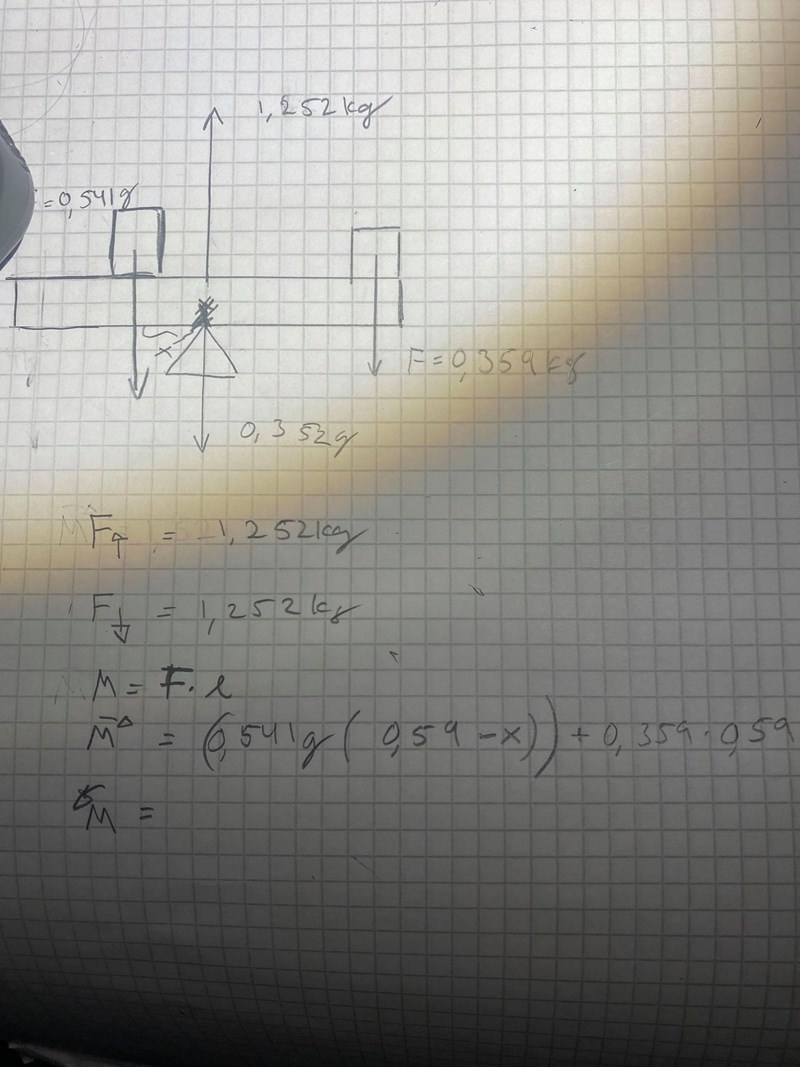 1,252kg
=0,541g
x
F=0,359kg
0,352g
F↑ = 1,252kg
F↓ = 1,252kg
M = F·l
M = (0,541g(0,59-x)) + 0,359·0,59
M =